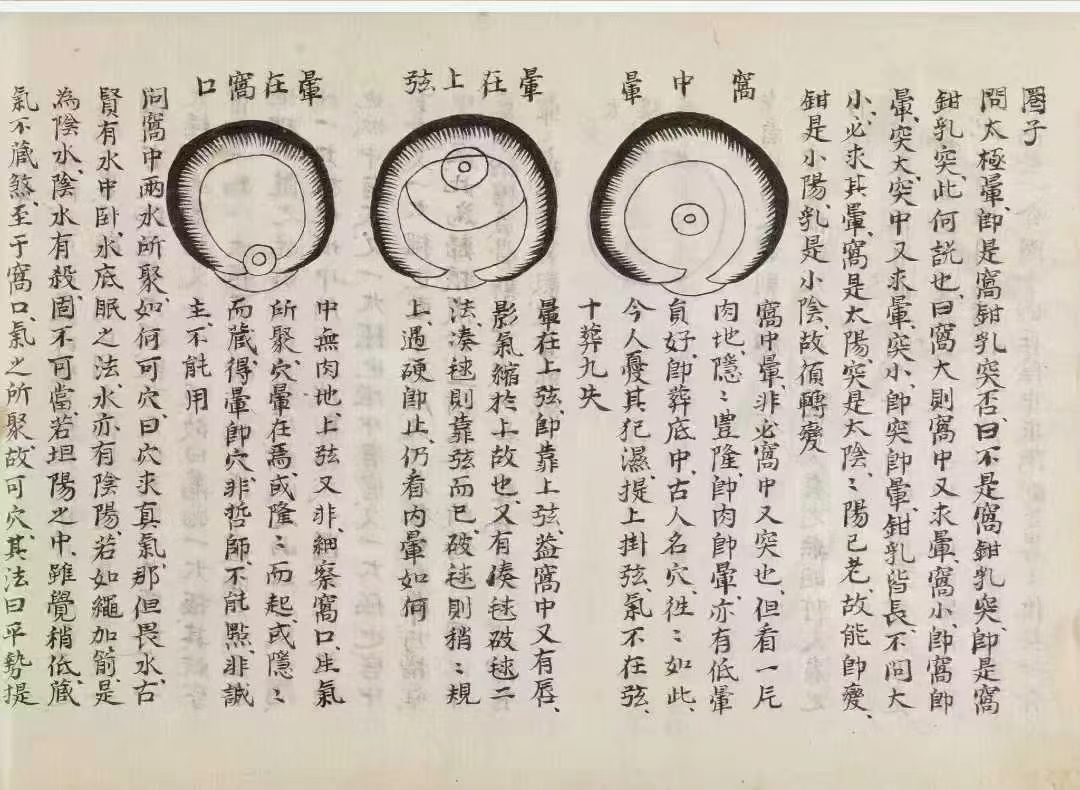 圈子
問太極暈、卽是窩鉗乳突否、曰不是窩鉗乳突、卽是窩
鉗乳突、此何説也、曰窩大則窩中又求暈、窩小、卽窩卽
暈、突大、突中又求暈、突小、卽突卽暈、鉗乳皆長、不問大
小、必求其暈、窩是太陽、突是太陰、〻陽已老、故能卽變、
鉗是小陽、乳是小陰、故須轉變
窩中暈
窩中暈、非必窩中又突也、但看一片
肉地、隱〻豐隆、卽肉卽暈、亦有低暈
員好、卽葬底中、古人名穴、徃〻如此、
今人憂其犯濕、提上掛弦、氣不在弦、
十葬九失
暈在上弦
暈在上弦、卽靠上弦、葢窩中又有唇、
影氣縮於上故也、又有湊毬破毬二
法、湊毬則靠弦而已、破毬則稍〻規
上、遇硬卽止、仍看內暈如何
暈在窩口
中無肉地、上弦又非、細察窩口、生氣
所聚、穴暈在焉、或隆〻而起、或隱〻
而藏、得暈卽穴、非哲師、不能點、非誠
主、不能用
問窩中兩水所聚、如何可穴、曰穴求真氣、那但畏水、古
賢有水中卧、水底眠之法、水亦有陰陽、若如繩加箭、是
為陰水、陰水有殺、固不可當、若坦陽之中、雖覺稍低、藏
氣不藏煞、至于窩口、氣之所聚、故可穴、其法曰平勢提